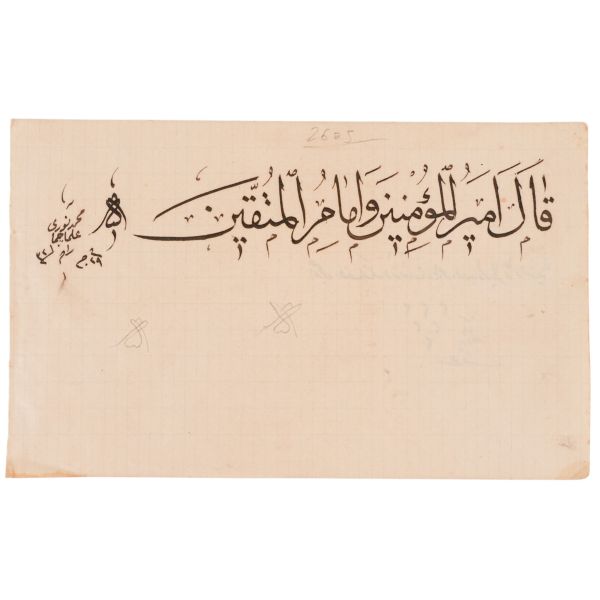 2605
قَالَ اَمِيرُ الْمُؤْمِنِينَ وَاِمَامُ الْمُتَّقِينَ
محمد نوری